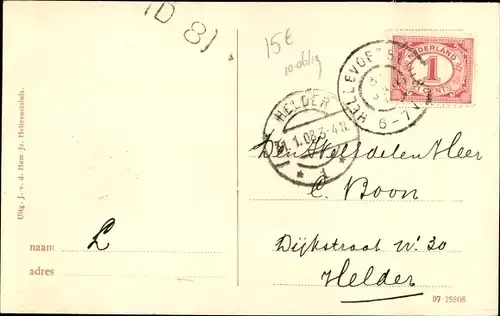 ID 81
15€
NEDERLAND
1
CENT
HELLEVOETSLUIS
6-7V
HELDER
31.1.08 3-4N
Den Weledelen Heer
C. Boon
Dijkstraat No. 30
Helder
naam L
adres
Uitg. J. v. d. Ham Jz. Hellevoetsluis.
07 25808